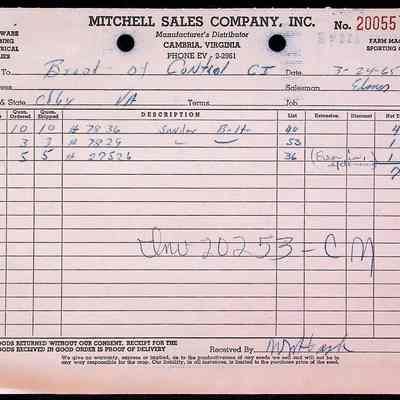 MITCHELL SALES COMPANY, INC. No. 20055
Manufacturer's Distributor
CAMBRIA, VIRGINIA
PHONE EV. 2-2961
WARE
NING
TRICAL
IES
FARM MAC
SPORTING G
To Board of Control CI Date 3-24-65
ress Salesman
& State Colby VA Terms Job
Quan. Ordered Quan. Shipped DESCRIPTION List Extension Discount Net T
10 10 # 7836 Sander Belts 40 4
3 3 # 7829 " " 53 1
5 5 # 27526 36 1
7
Inv 20253-CM
OODS RETURNED WITHOUT OUR CONSENT. RECEIPT FOR THE
OODS RECEIVED IN GOOD ORDER IS PROOF OF DELIVERY Received By
We give no warranty, express or implied, as to the productiveness of any seeds we sell and will not be in
any way responsible for the crop. Our liability, in all instances, is limited to the purchase price of the seed.